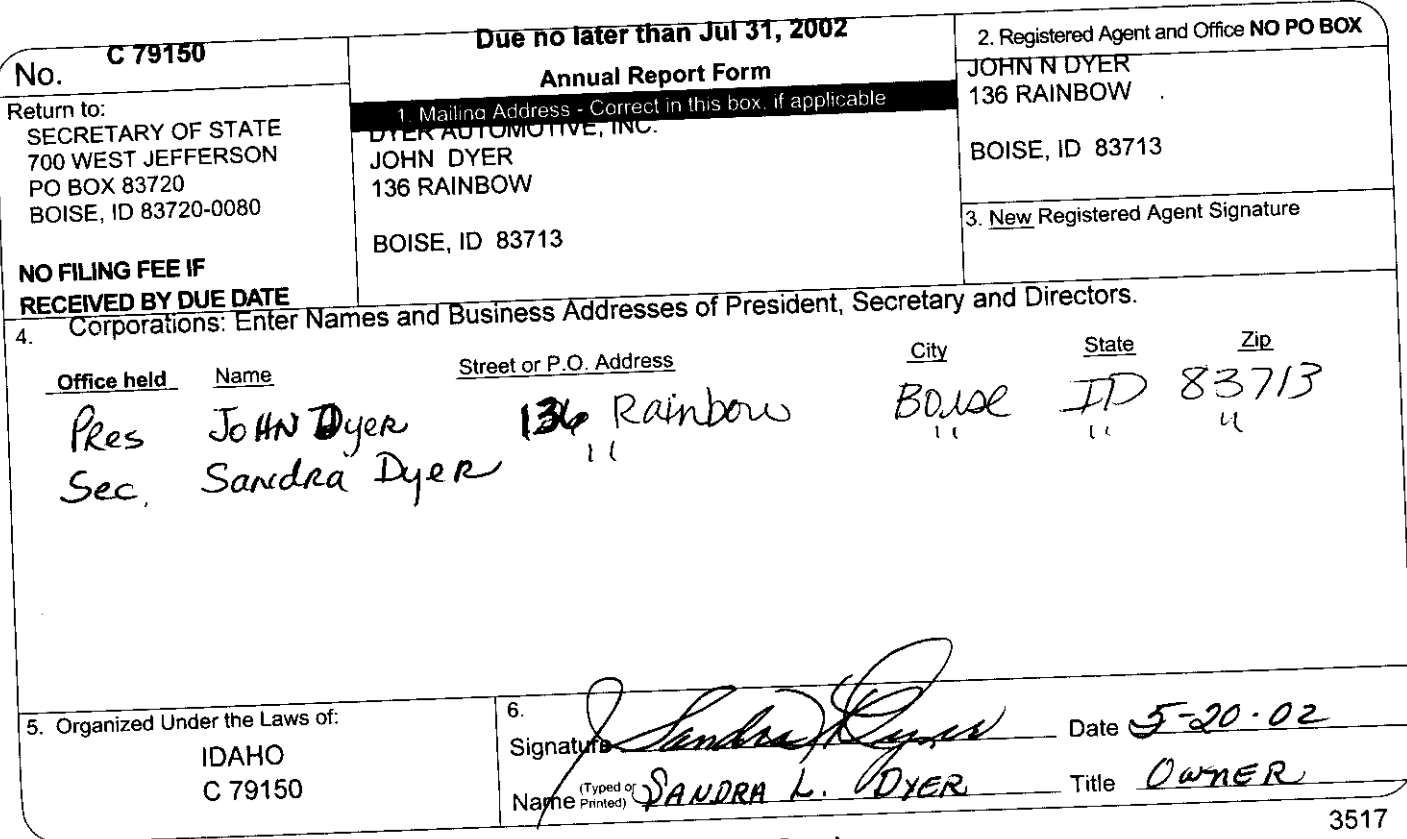 No. C 79150
Return to:
SECRETARY OF STATE
700 WEST JEFFERSON
PO BOX 83720
BOISE, ID 83720-0080
NO FILING FEE IF
RECEIVED BY DUE DATE
Due no later than Jul 31, 2002
Annual Report Form
1. Mailing Address - Correct in this box, if applicable
DYER AUTOMOTIVE, INC.
JOHN DYER
136 RAINBOW
BOISE, ID 83713
2. Registered Agent and Office NO PO BOX
JOHN N DYER
136 RAINBOW
BOISE, ID 83713
3. New Registered Agent Signature
4. Corporations: Enter Names and Business Addresses of President, Secretary and Directors.
Office held Name Street or P.O. Address City State Zip
Pres JOHN Dyer 136 Rainbow Boise ID 83713
Sec. Sandra Dyer " " " "
5. Organized Under the Laws of:
IDAHO
C 79150
6.
Signature Sandra L Dyer Date 5-20-02
Name (Typed or Printed) SANDRA L. DYER Title OWNER
3517